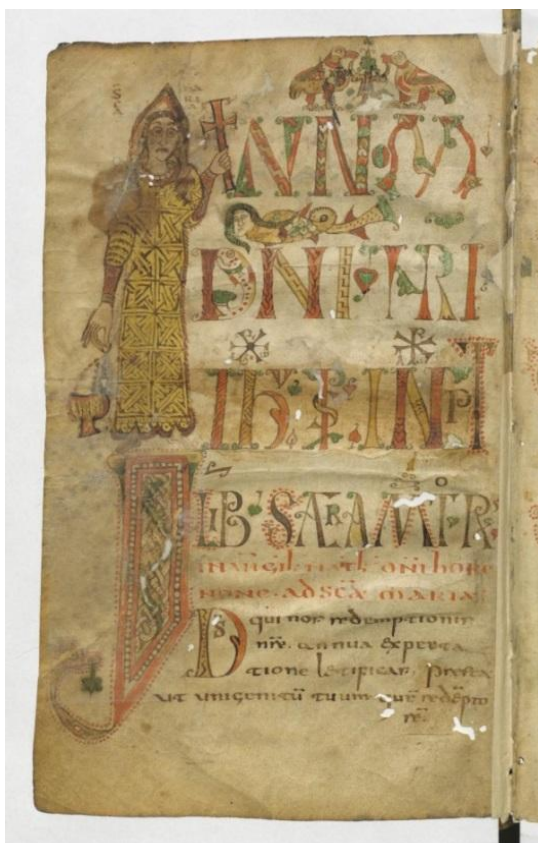 SCA MARIA
INNOM
DNI NRI
IHU XPI INCPT
LIB SACRAMTOR
IN UIGIL NATL DNI HORE
NONE · AD SCA MARIA
Ds qui nos redemptionis
nre annua expecta
tione letificas presta
ut unigenitū tuum quē redēpto
rē